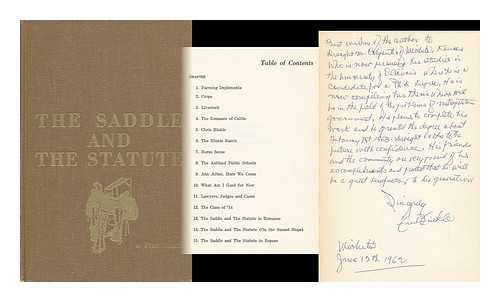 THE SADDLE
AND
THE STATUTE
Table of Contents
CHAPTER
1. Farming Implements
2. Crops
3. Livestock
4. The Romance of Cattle
5. Chris Hinkle
6. The Hinkle Ranch
7. Horse Sense
8. The Ashland Public Schools
9. Ann Arbor, Here We Come
10. What Am I Good for Now
11. Lawyers, Judges and Cases
12. The Class of '14
13. The Saddle and The Statute in Romance
14. The Saddle and The Statute (On the Sunset Slope)
15. The Saddle and The Statute in Repose
Best wishes of the author to
Dwight M. Carpenter of Wichita, Kansas
who is now pursuing his studies in
the University of Illinois where he is a
candidate for a Ph.D. degree. He is
now completing his thesis which will
be in the field of the problems of metropolitan
government. He plans to complete his
work and be granted the degree about
January 1st 1963. Dwight looks to the
future with confidence. His friends
and the community are very proud of his
accomplishments and predict that he will
be a great benefactor to his generation
Sincerely
Hinkle
Wichita
June 13th 1962